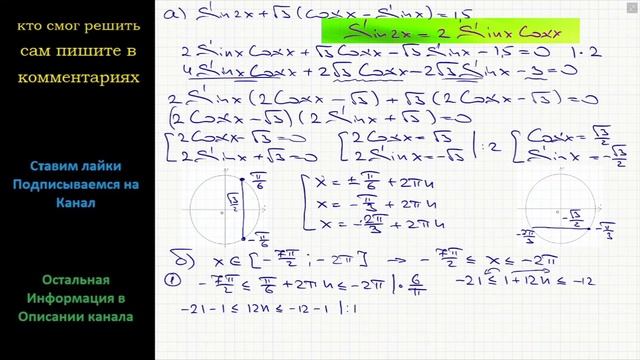 кто смог решить
сам пишите в
комментариях
Ставим лайки
Подписываемся на
Канал
Остальная
Информация в
Описании канала
а) Sin2x + √3 (Cosx − Sinx) = 1,5
Sin2x = 2 Sinx Cosx
2 Sinx Cosx + √3 Cosx − √3 Sinx − 1,5 = 0 | · 2
4 Sinx Cosx + 2√3 Cosx − 2√3 Sinx − 3 = 0
2 Sinx (2 Cosx − √3) + √3 (2 Cosx − √3) = 0
(2 Cosx − √3) (2 Sinx + √3) = 0
[ 2 Cosx − √3 = 0 [ 2 Cosx = √3 | : 2 [ Cosx = √3/2
[ 2 Sinx + √3 = 0 [ 2 Sinx = −√3 [ Sinx = −√3/2
π/6
√3/2
−π/6
[ x = ± π/6 + 2πn
x = − π/3 + 2πn
x = − 2π/3 + 2πn
−√3/2
−2π/3
−π/3
б) x ∈ [− 7π/2 ; −2π] → − 7π/2 ≤ x ≤ −2π
① − 7π/2 ≤ π/6 + 2πn ≤ −2π | · 6/π −21 ≤ 1 + 12n ≤ −12
−21 −1 ≤ 12n ≤ −12 −1 | : 1